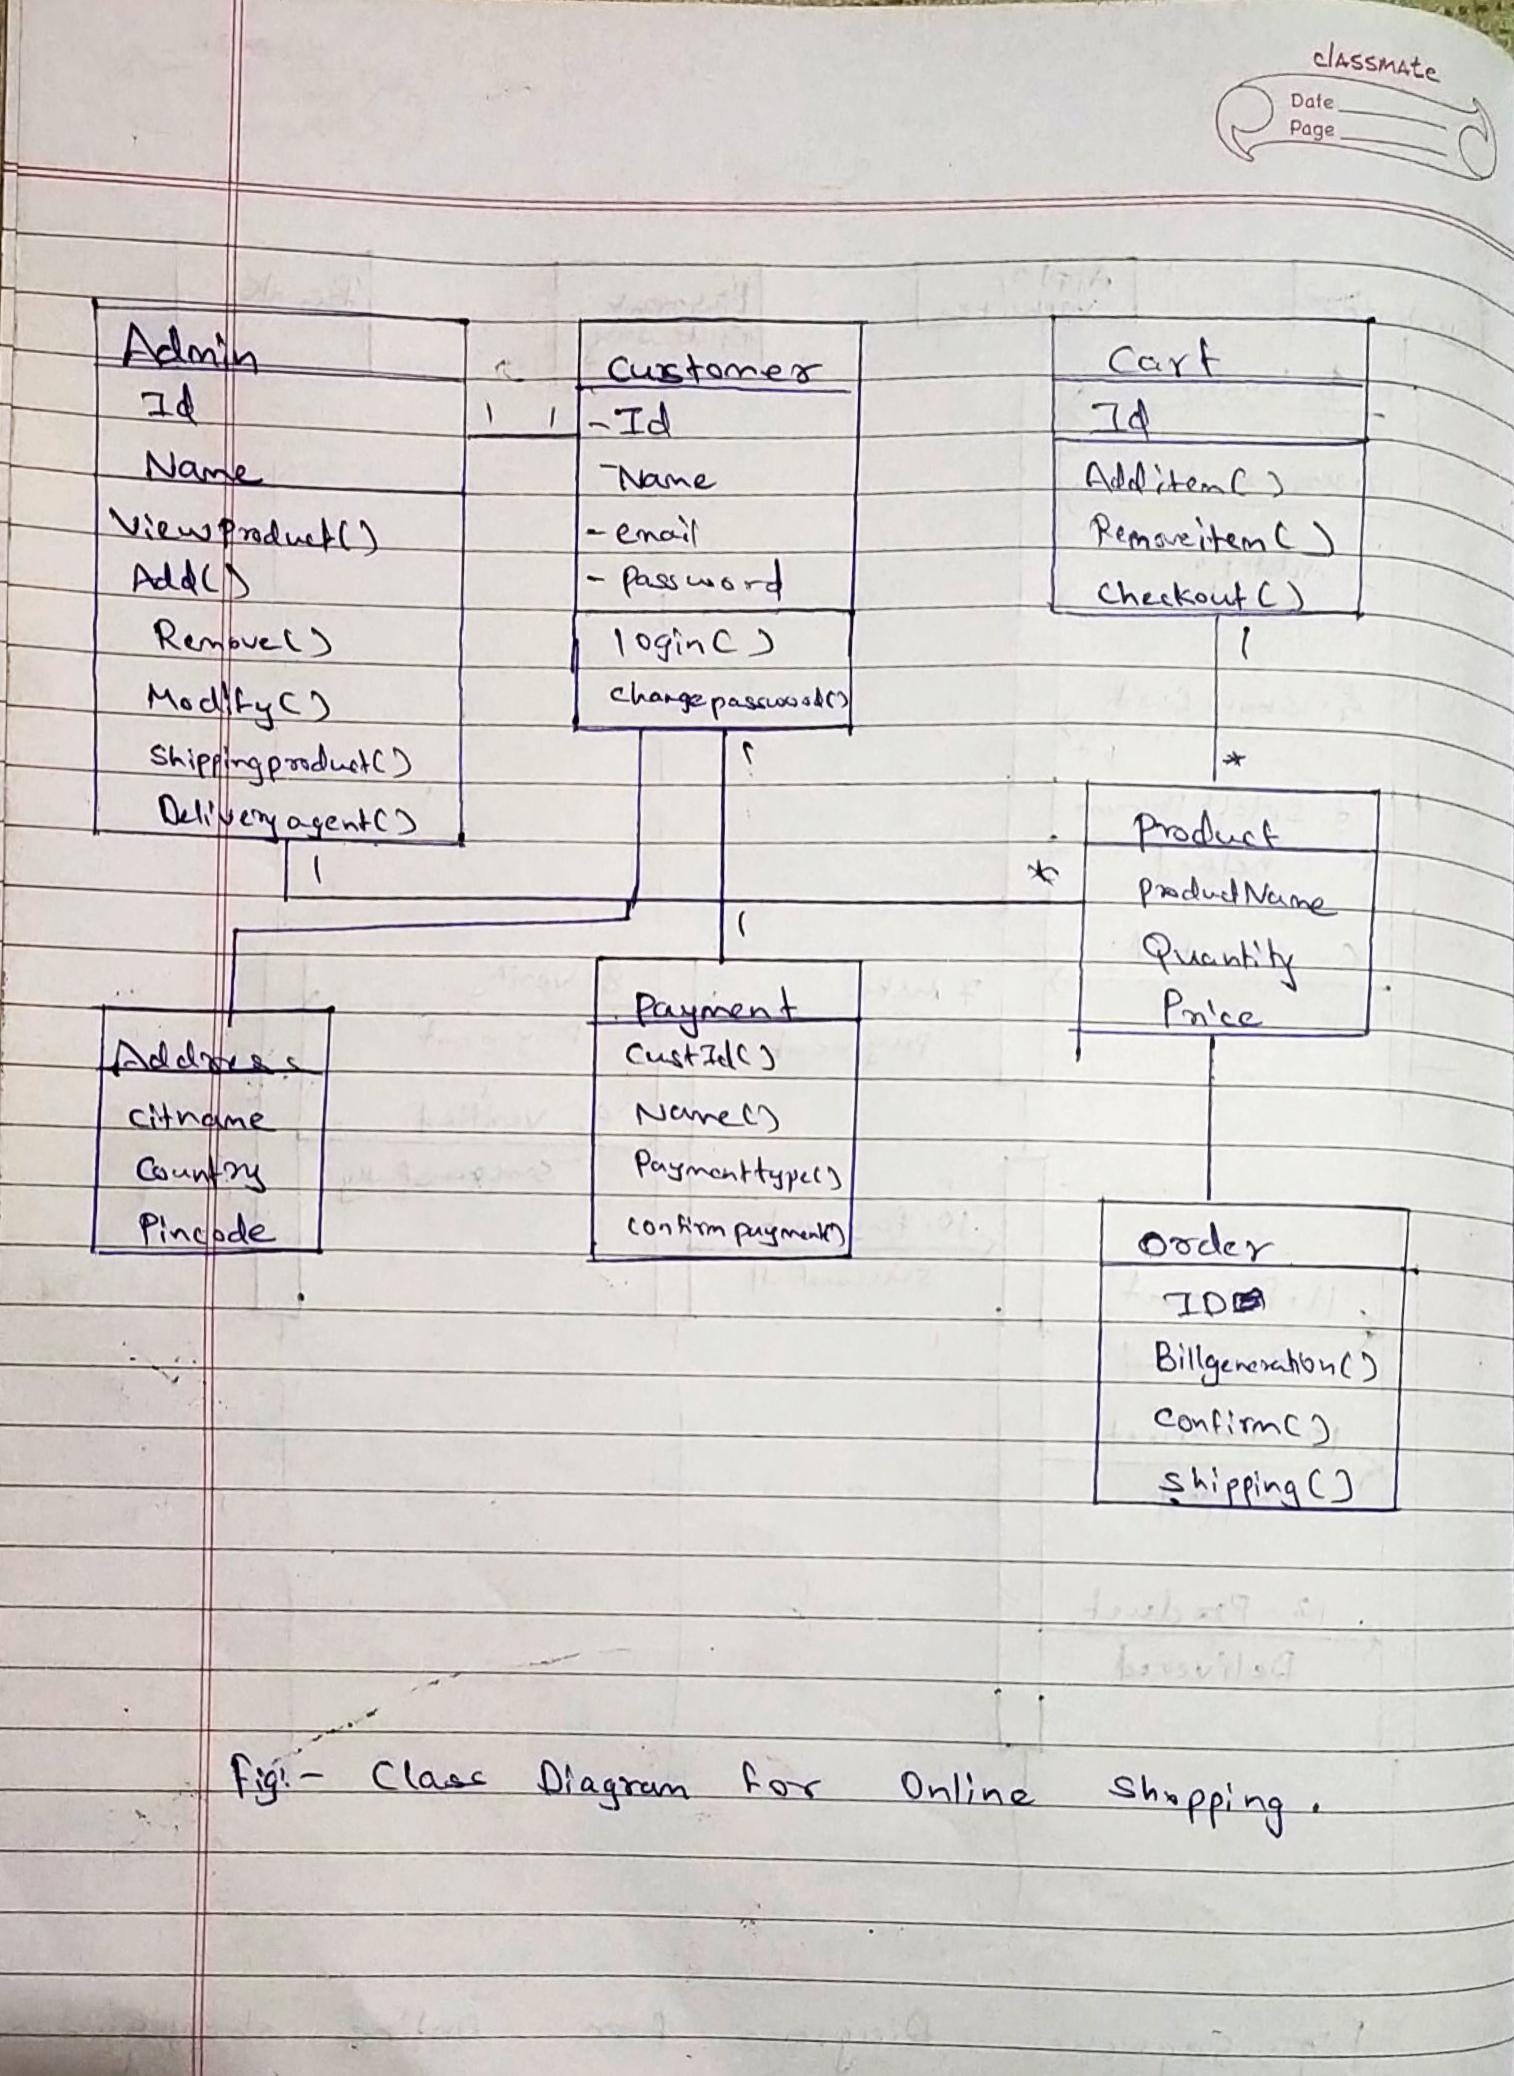 classmate
Date
Page
Admin
Id
Name
ViewProduct()
Add()
Remove()
Modify()
Shippingproduct()
Deliveryagent()
1
1 1
Customer
- Id
- Name
- email
- password
login()
changepassword()
1
1
Cart
Id
Additem()
Removeitem()
Checkout()
1
*
*
Product
productName
Quantity
Price
Address
Citname
Country
Pincode
Payment
CustId()
Name()
Paymenttype()
confirmpayment()
Order
ID
Billgeneration()
Confirm()
Shipping()
Fig:- Class Diagram for Online Shopping.